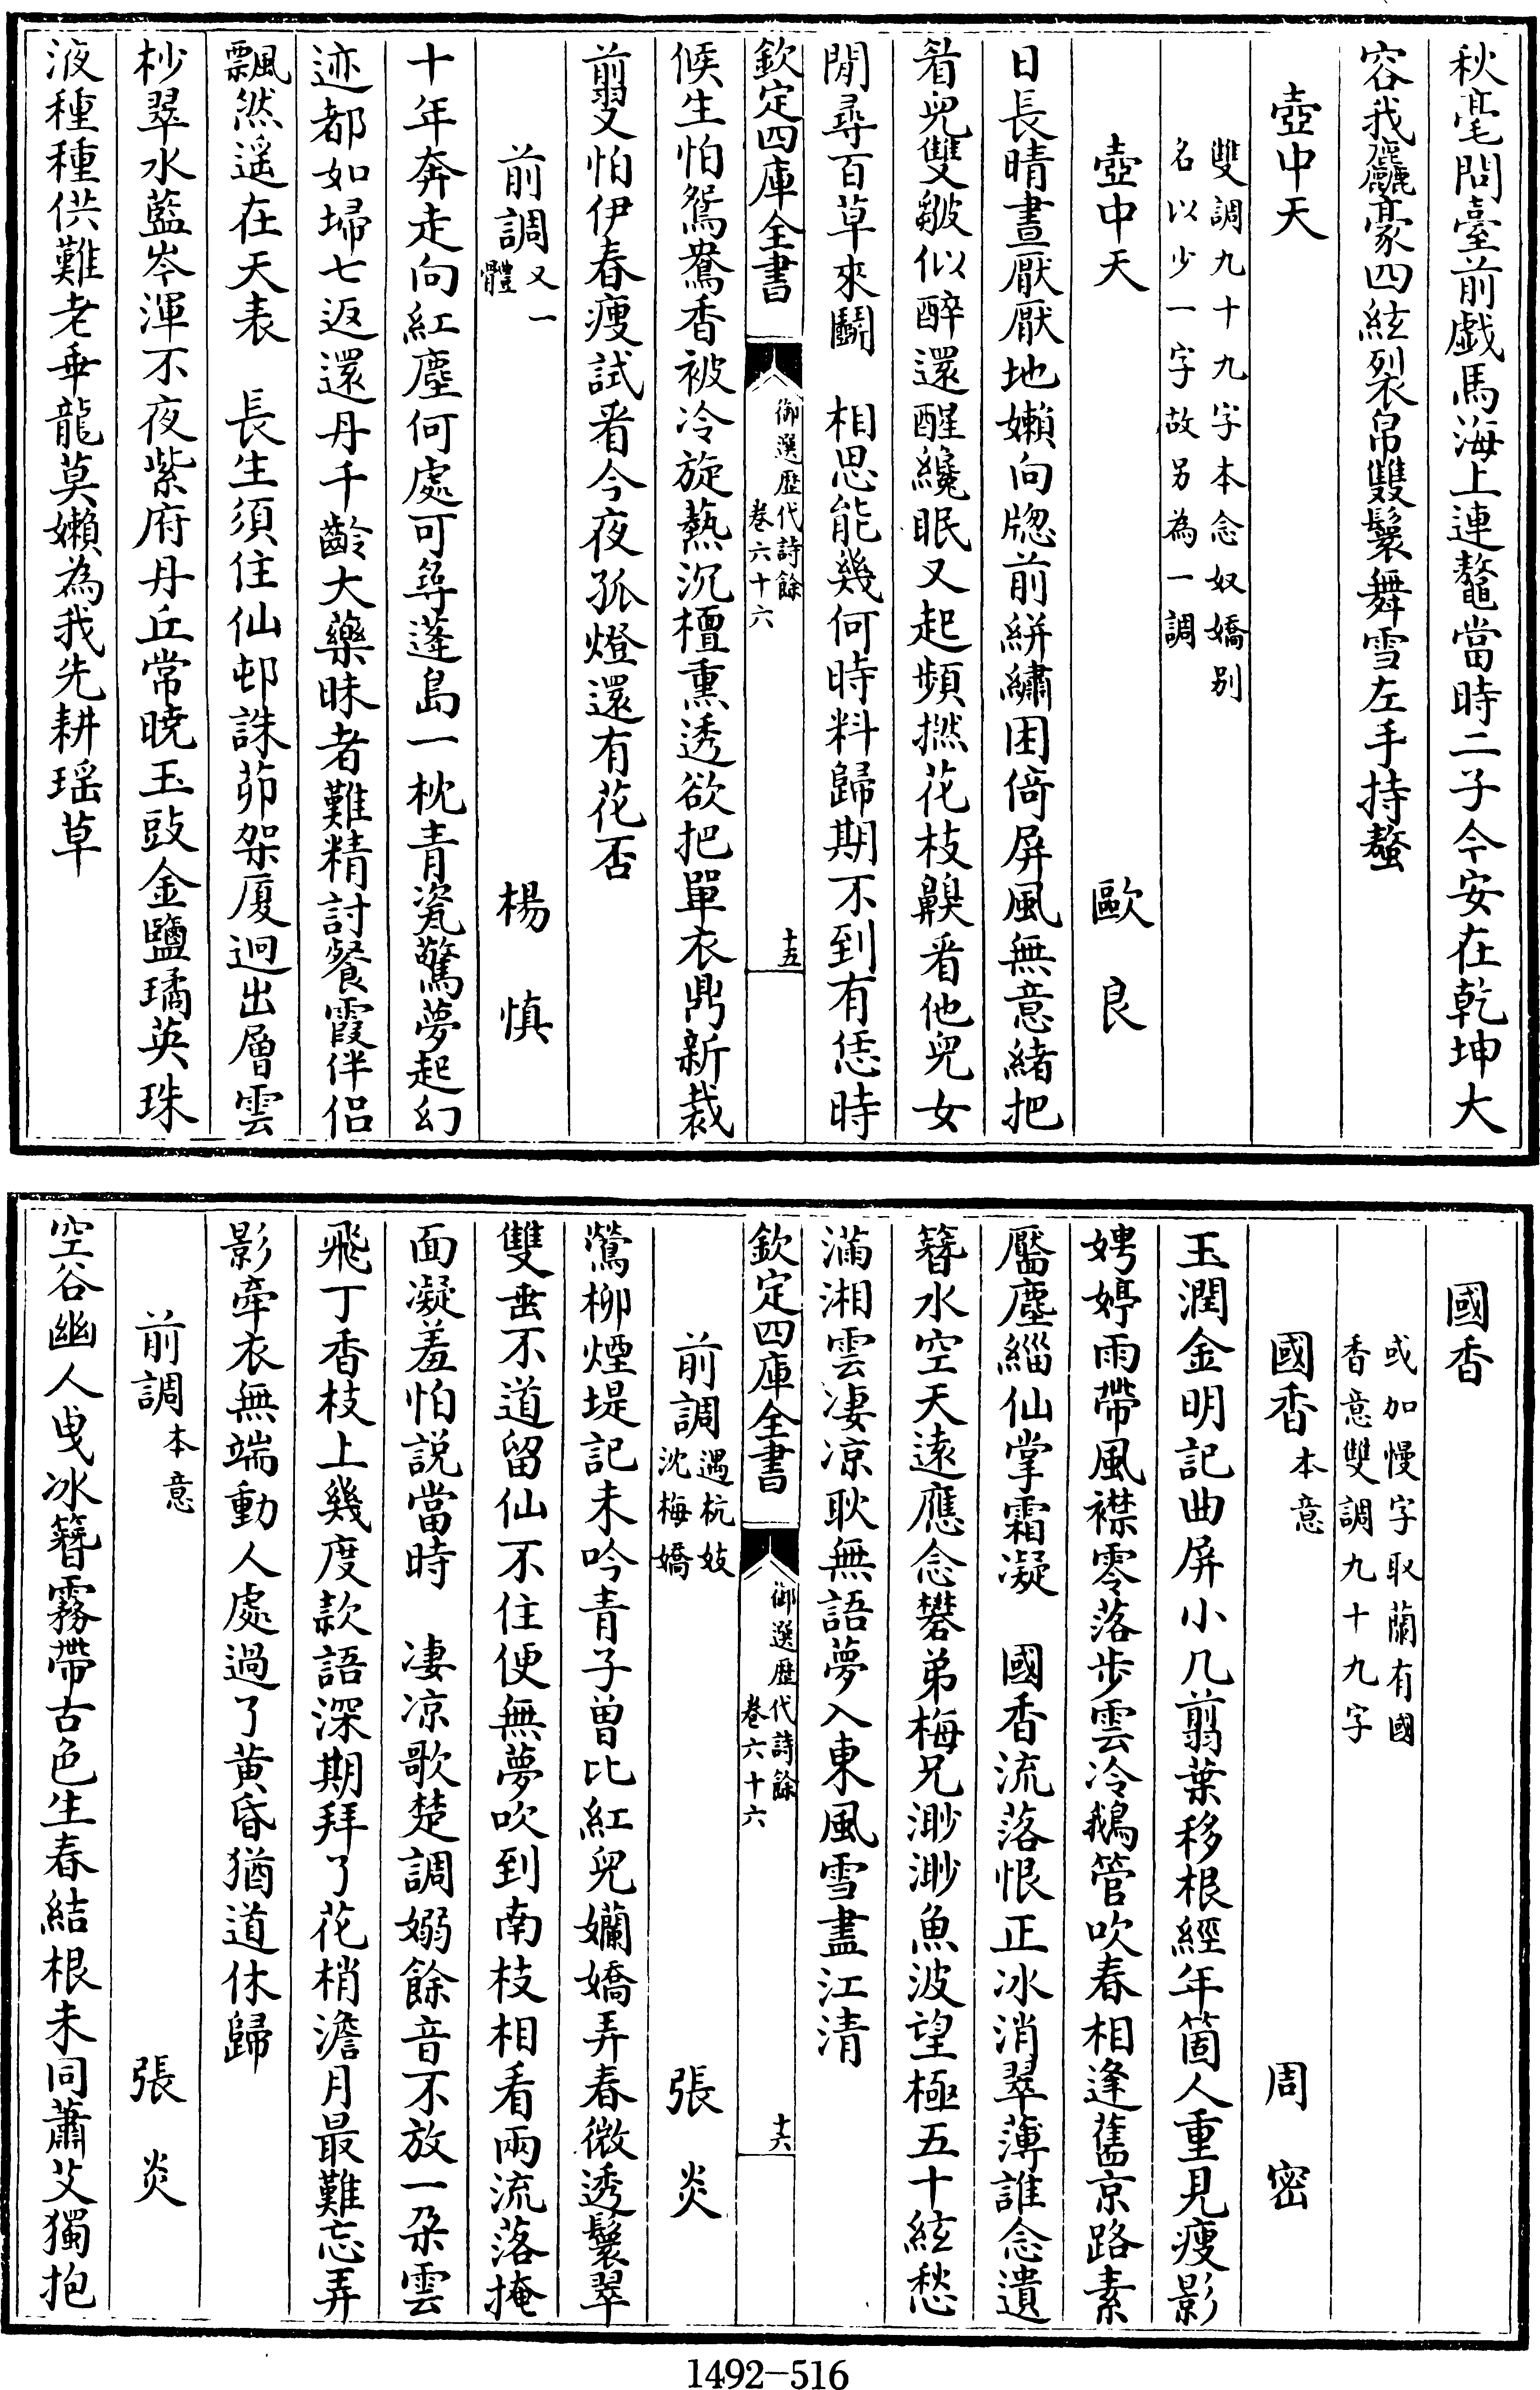 秋毫問臺前戯馬海上連鼇當時二子今安在乾坤大
容我麤豪四絃裂帛雙鬟舞雪左手持螯
壺中天
雙調九十九字本念奴嬌别
名以少一字故另為一調
壺中天 歐良
日長晴晝厭厭地嬾向牎前絣繡困倚屏風無意緒把
㸔兒雙皺似醉還醒纔眠又起頻撚花枝齅看他兒女
閒尋百草來鬭 相思能幾何時料歸期不到有恁時
欽定四庫全書 御選歴代詩餘 卷六十六 十五
候生怕鴛鴦香被冷旋爇沉檀熏透欲把單衣鼎新裁
翦又怕伊春瘦試看今夜孤燈還有花否
前調又一體 楊慎
十年奔走向紅塵何處可尋蓬島一枕青瓷驚夢起幻
迹都如埽七返還丹千齡大藥昧者難精討餐霞伴侣
飄然遥在天表 長生須住仙邨誅茆架厦迥出層雲
杪翠水藍岑渾不夜紫府丹丘常曉玉豉金鹽璚英珠
液種種供難老乖龍莫嬾為我先耕瑶草
國香
或加慢字取蘭有國
香意雙調九十九字
國香本意 周密
玉潤金明記曲屏小几翦葉移根經年箇人重見瘦影
娉婷雨帶風襟零落步雲冷鵝管吹春相逢舊京路素
靨塵緇仙掌霜凝 國香流落恨正冰消翠薄誰念遺
簪水空天遠應念礬弟梅兄渺渺魚波望極五十絃愁
滿湘雲凄凉耿無語夢入東風雪盡江清
欽定四庫全書 御選歴代詩餘 卷六十六 十六
前調遇杭妓沈梅嬌 張炎
鶯柳煙堤記未吟青子曽比紅兒嬾嬌弄春微透鬟翠
雙垂不道留仙不住便無夢吹到南枝相看兩流落掩
面凝羞怕説當時 凄凉歌楚調嫋餘音不放一朶雲
飛丁香枝上幾度款語深期拜了花梢澹月最難忘弄
影牽衣無端動人處過了黄昏猶道休歸
前調本意 張炎
空谷幽人曳冰簪霧帶古色生春結根未同蕭艾獨抱
1492-516